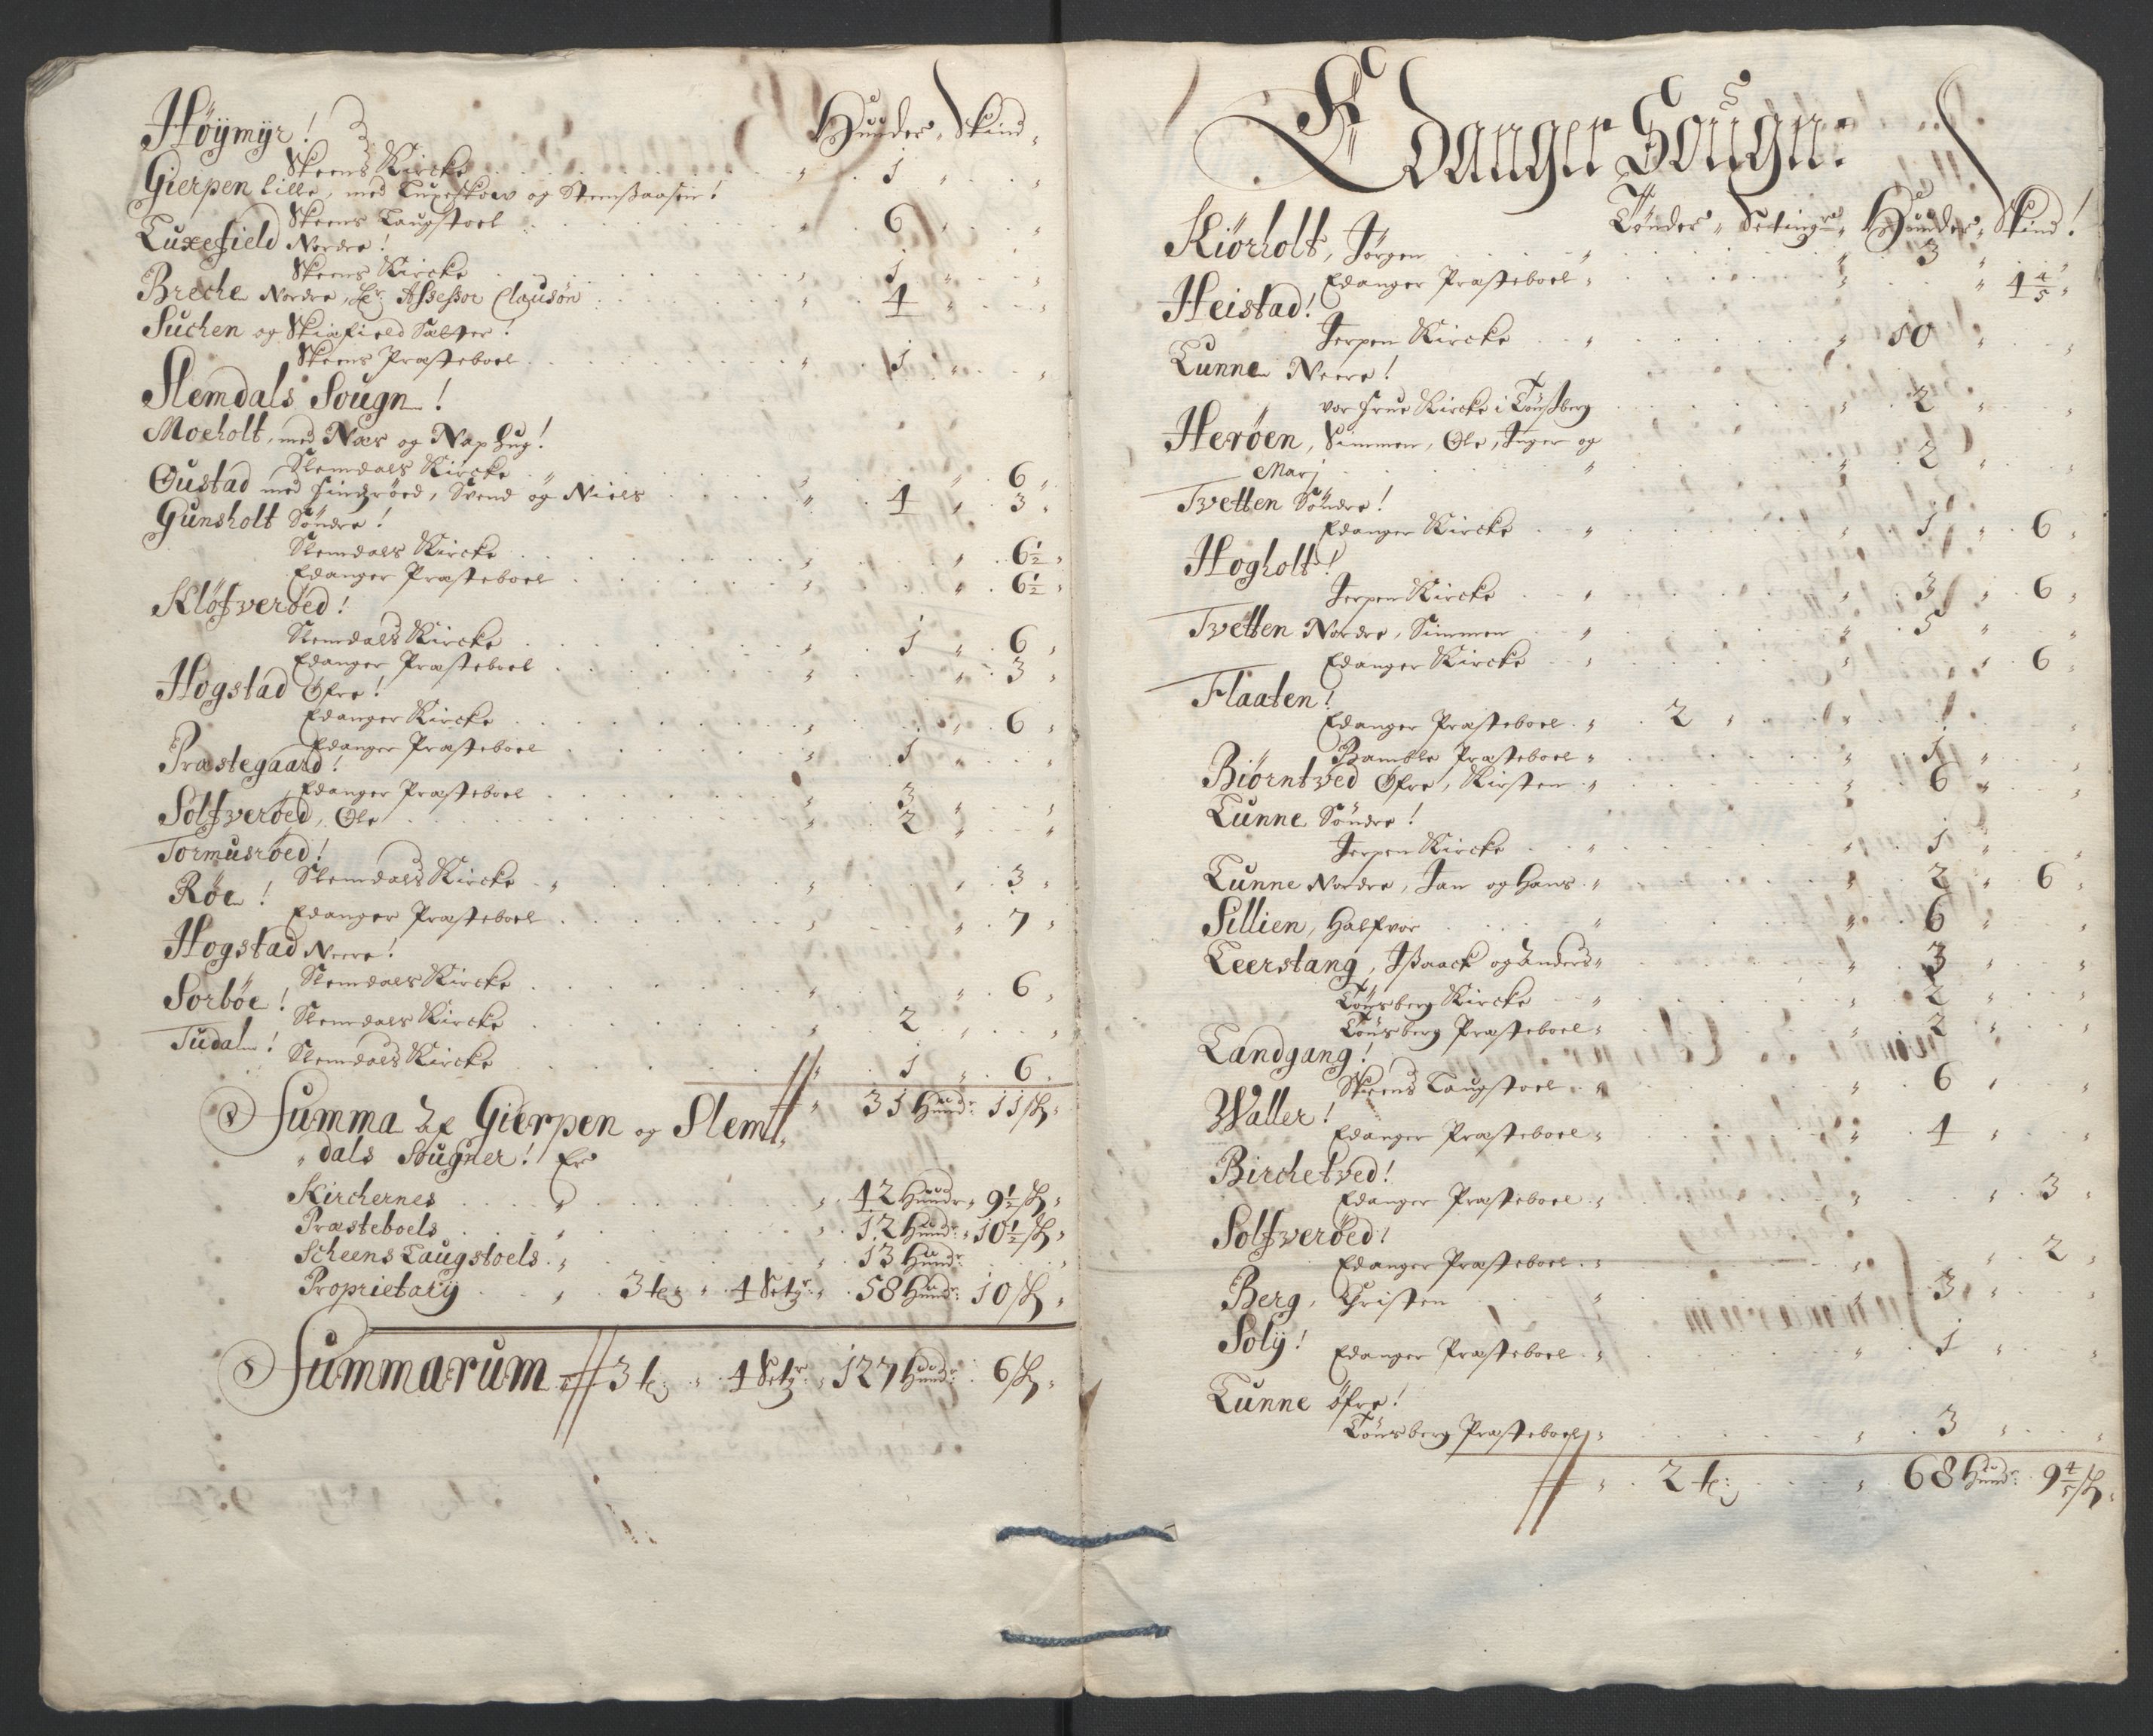 Høÿmÿr! Huuder, Skind
Skeens Kircke 1
Gierpen lille, med Luxeskow og Stensaasen!
Skeens Laugstoel 6
Luxefield Nordre!
Skeens Kircke 1
Breche Nordre, Hr. Assessor Clausøn 4
Suchen og Skiefield Sætter!
Skeens Præsteboel 1
Slemdals Sougn!
Moeholt, med Næs og Naphug!
Slemdals Kircke 6
Oustad med Findzrøed, Svend og Niels 4 3
Gunsholt Søndre!
Slemdals Kircke 6½
Edanger Præsteboel 6½
Kløfverøed!
Slemdals Kircke 1 6
Edanger Præsteboel 3
Hogstad Øfre!
Edanger Kircke 6
Edanger Præsteboel 1
Præstegaard!
Edanger Præsteboel 3
Sølfverøed, Ole 2
Tormusrøed!
Slemdals Kircke 3
Røe!
Edanger Præsteboel 7
Hogstad Neere!
Slemdals Kircke 6
Sorbøe!
Slemdals Kircke 2
Tudal!
Slemdals Kircke 1 6
31 Hund: 11 sk
Summa Af Gierpen og Slem
dals Sougner! Er
Kirchernes 42 Hund 9½ sk
Præsteboels 12 Hund: 10½ sk
Scheens Laugstoels 13 Hund:
Proprietarij 3 te 4 Setr: 58 Hund: 10 sk
Summarum 3 te 4 Setr: 127 Hund: 6 sk
Edanger Sougn:
Tønder, Setinger, Huuder, Skind!
Kiørholt, Jørgen 3
Edanger Præsteboel 4 4/5
Heistad!
Jerpen Kircke 10
Lunne Neere!
vor Frue Kircke i Tønsberg 2
Herøen, Simmen, Ole, Inger og
Marj 2
Tvetten Søndre!
Edanger Kircke 1 6
Hogholt!
Jerpen Kircke 3 6
Tvetten Nordre, Simmen 5
Edanger Kircke 6
Flaaten!
Edanger Præsteboel 2
Bamble Præsteboel 1
Biørntved Øfre, Kirsten 6
Lunne Søndre!
Jerpen Kircke 1
Lunne Nordre, Jan og Hans 2 6
Sillien, Halfvor 6
Leerstang, Issaack og Anders 3
Tønsberg Kircke 2
Tønsberg Præsteboel 2
Landgang!
Skeens Laugstoel 6
Waller!
Edanger Præsteboel 4
Birchetved!
Edanger Præsteboel 3
Sølfverøed!
Edanger Præsteboel 2
Berg, Christen 3
Solÿ!
Edanger Præsteboel 1
Lunne øfre!
Tønsberg Præsteboel 3
2 te: 68 Hund: 9 4/5 sk